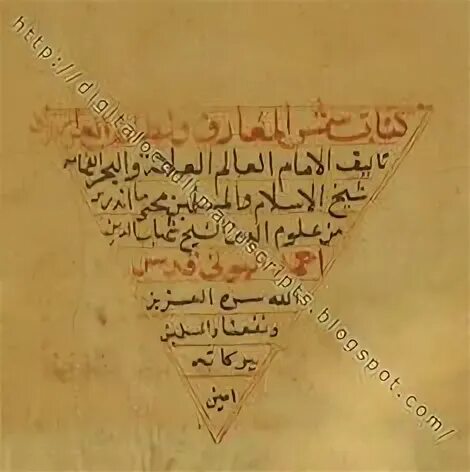 كتاب شمس المعارف و
تاليف الامام العالم العلامة والبحر الفهامة
شيخ الاسلام والمسلمين محيي ما اندرس
من علوم الشيخ شهاب الدين
احمد البوني قدس
الله سره العزيز
ونفعنا والمسلمين
ببركاته
امين
http://digitaloccultmanuscripts.blogspot.com/